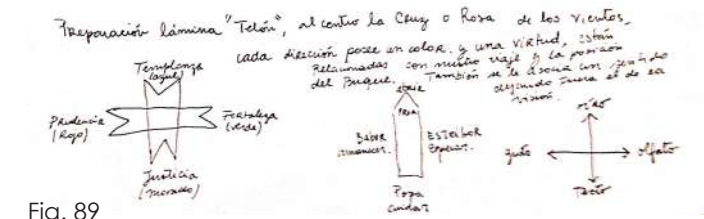 Preparación lámina "Telón", al centro la Cruz o Rosa de los vientos,
cada dirección posee un color, y una virtud, están
Relacionadas con nuestro viaje y la posición
del Buque. También se le asocia un sentido
dejando fuera el de la
visión.
Templanza
(azul)
Prudencia
(Rojo)
Fortaleza
(verde)
Justicia
(morado)
abrir
PROA
Babor
ESTRIBOR
Esperar.
Popa
cuidar
oído
gusto
olfato
Tacto
Fig. 89